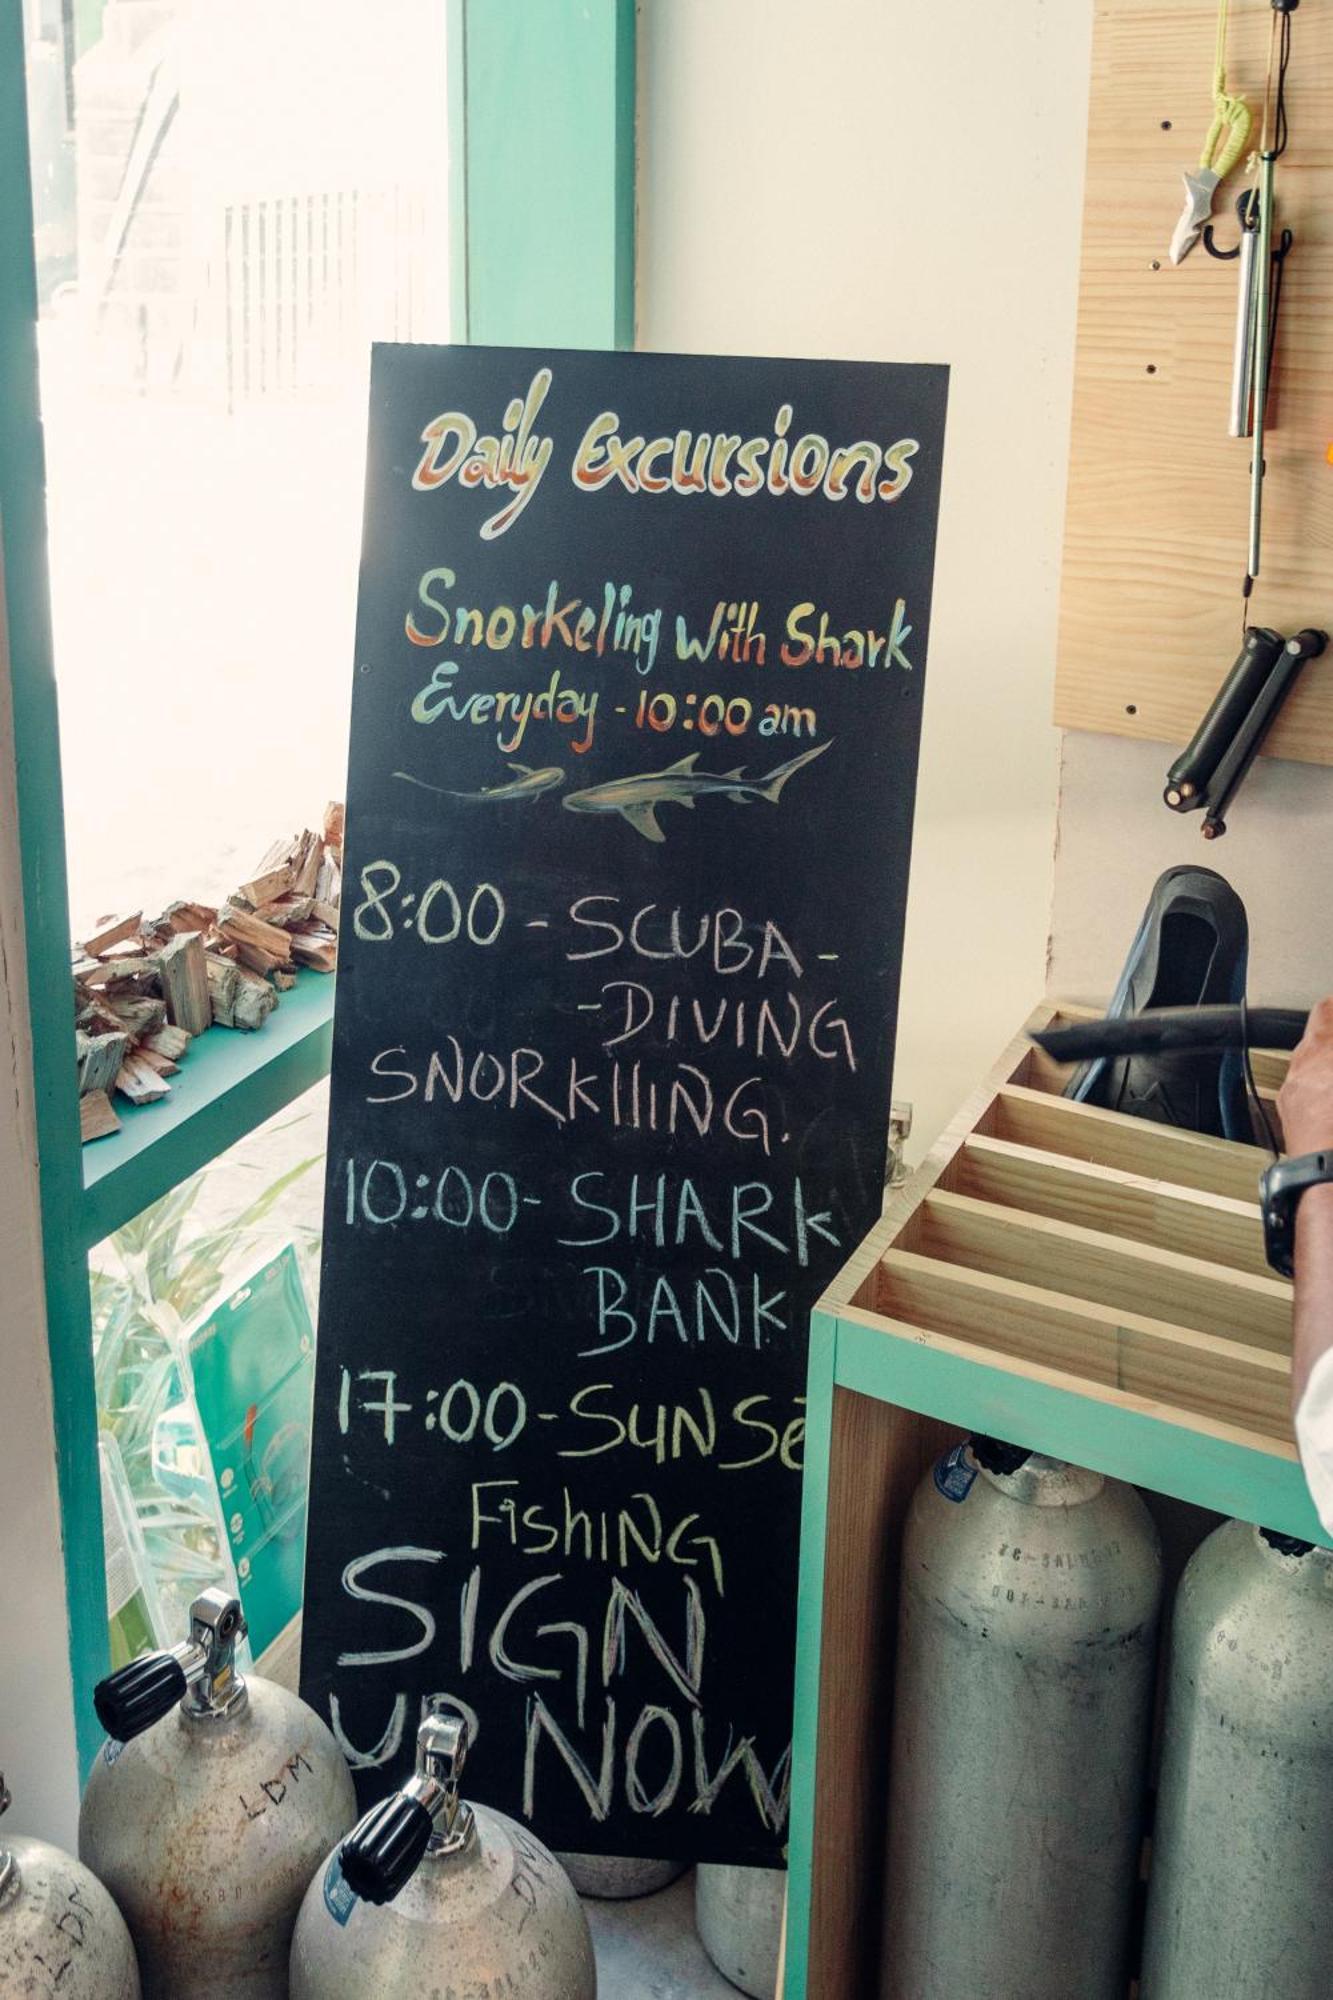 Daily Excursions
Snorkeling With Shark
Everyday - 10:00 am
8:00 - SCUBA -
- DIVING
SNORKIIING.
10:00 - SHARK
BANK
17:00 - SUNSe
FishING
SIGN
UP NOW
LDM
LDM
LDM